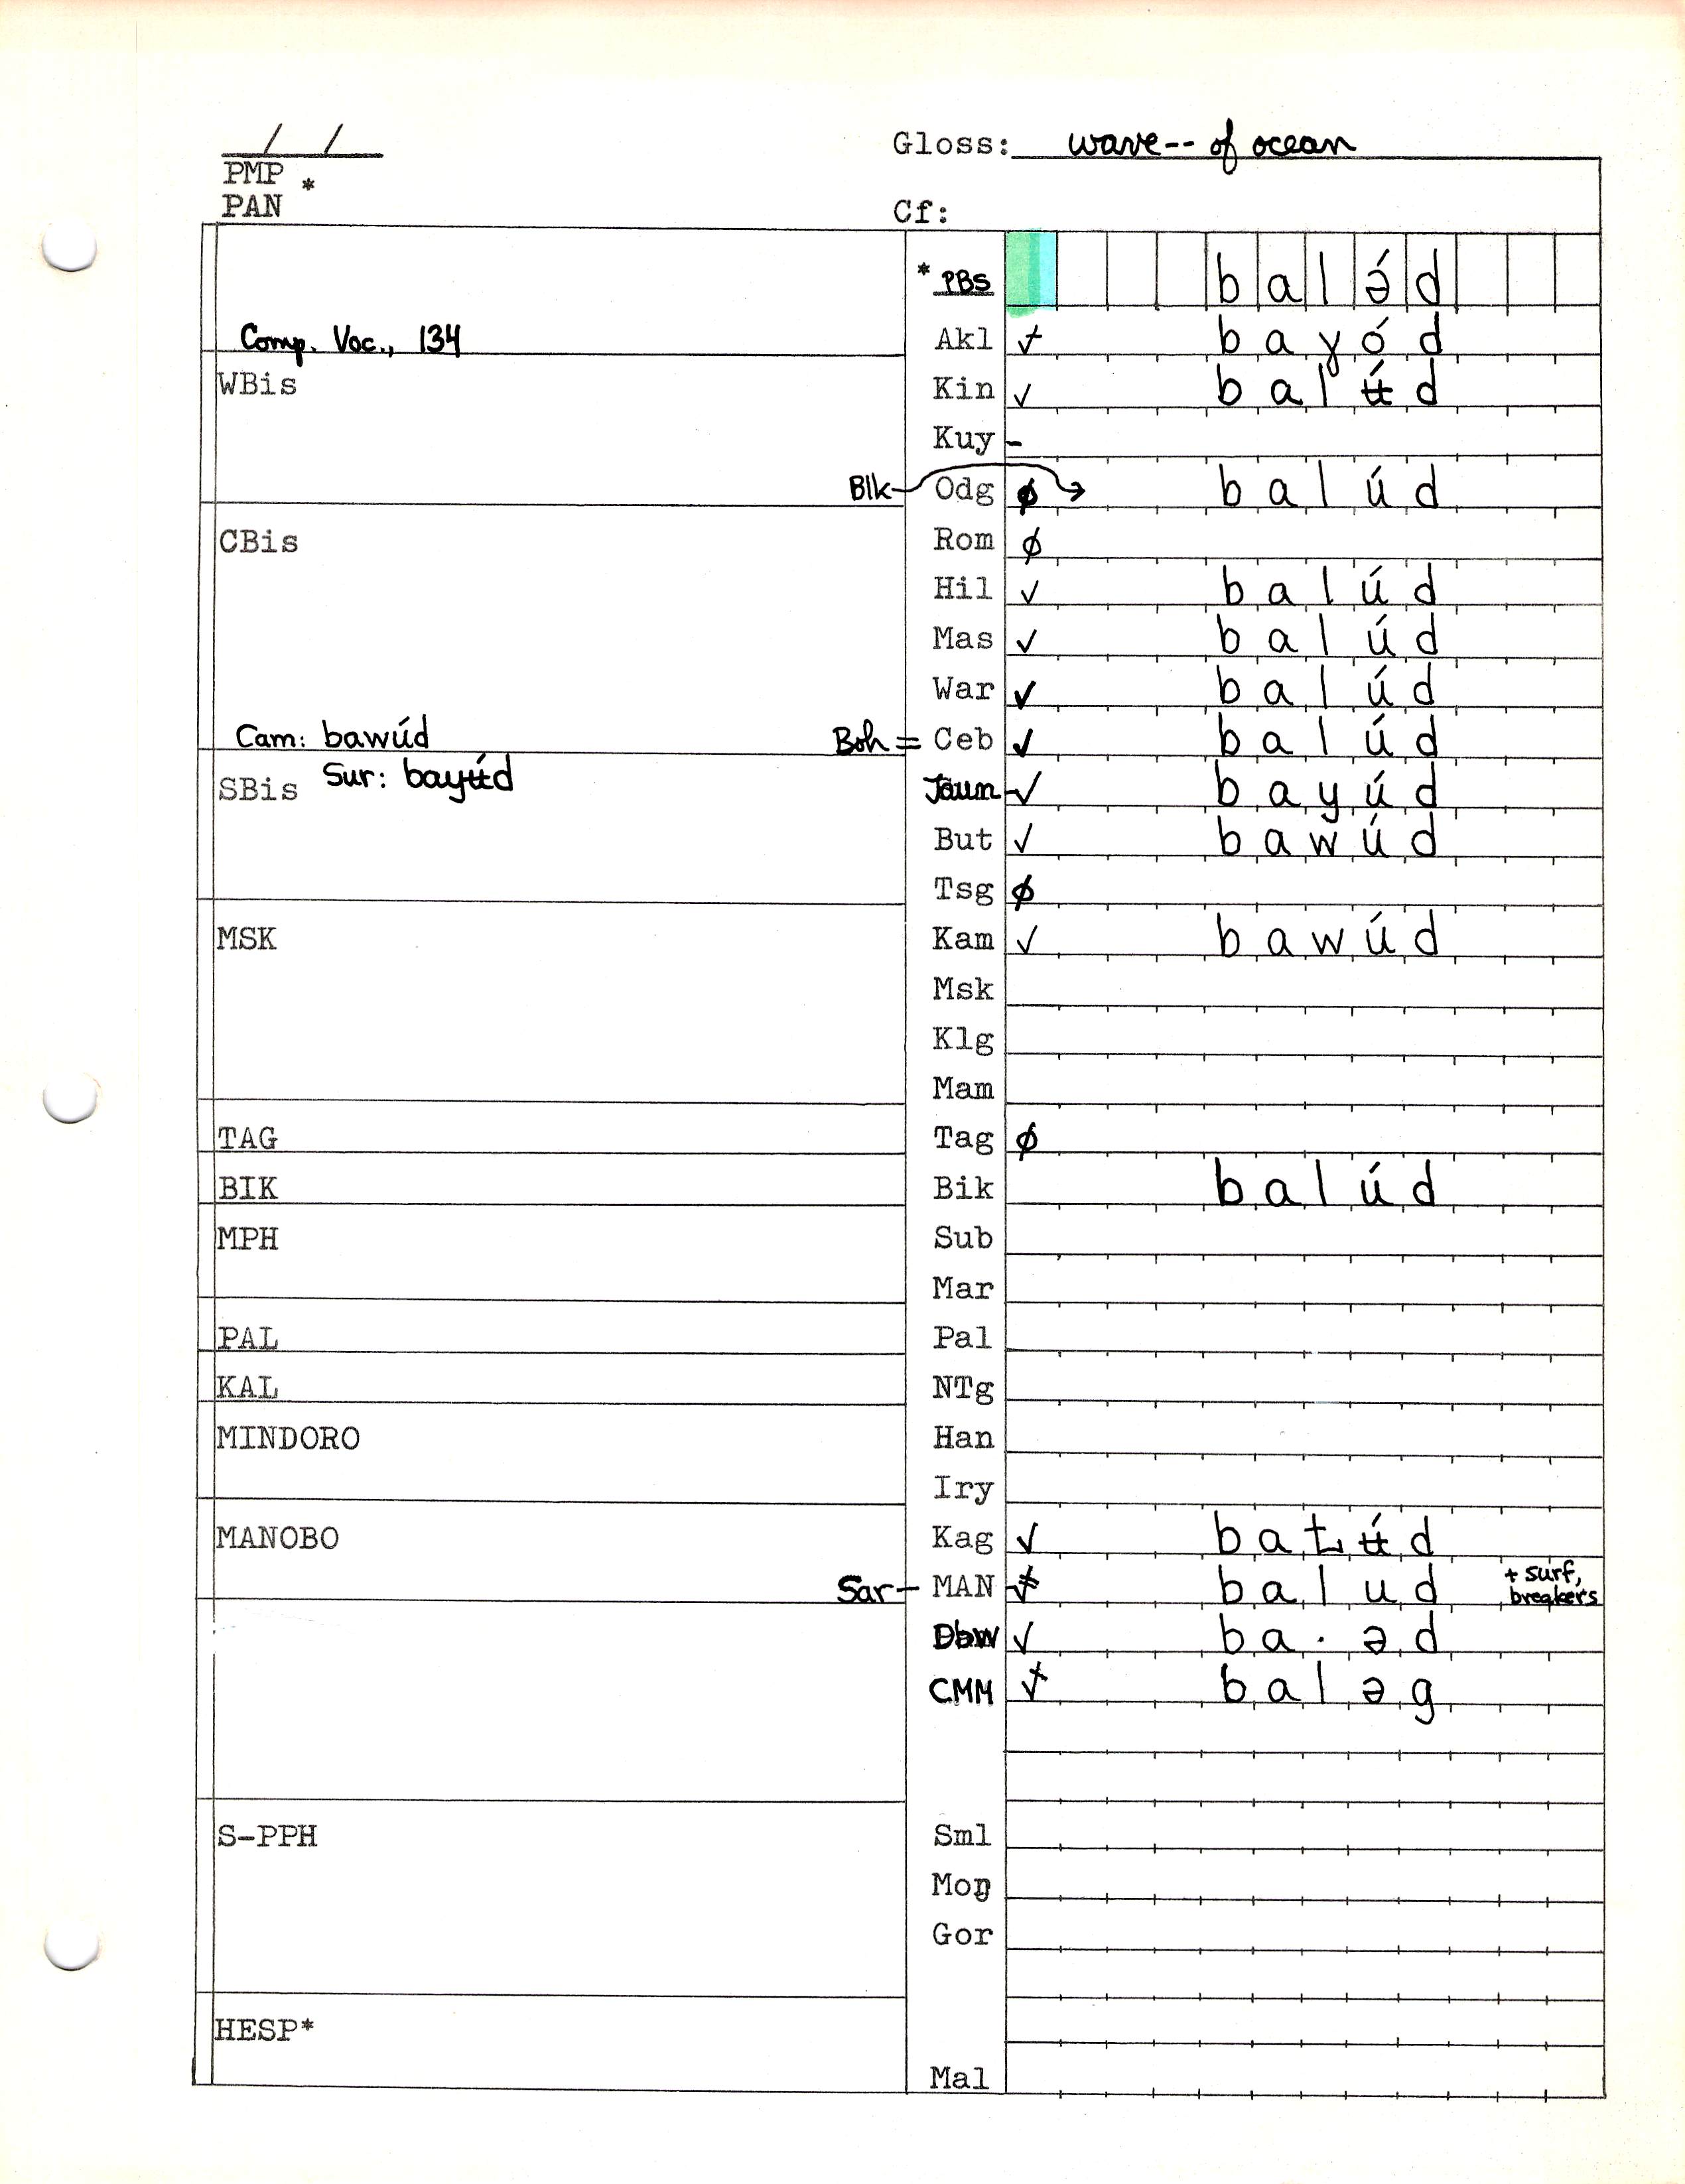 / /
Gloss: wave-- of ocean
PMP *
PAN
Cf:
* PBS b a l ə́ d
Comp. Voc., 134
Akl b a ɣ ó d
WBis
Kin ✓ b a l ʉ́ d
Kuy -
Blk Odg ø → b a l ú d
CBis
Rom ø
Hil ✓ b a l ú d
Mas ✓ b a l ú d
War ✓ b a l ú d
Cam: bawúd
Boh = Ceb ✓ b a l ú d
SBis Sur: bayʉ́d
Jaun ✓ b a y ú d
But ✓ b a w ú d
Tsg ø
MSK
Kam ✓ b a w ú d
Msk
Klg
Mam
TAG
Tag ø
BIK
Bik b a l ú d
MPH
Sub
Mar
PAL
Pal
KAL
NTg
MINDORO
Han
Iry
MANOBO
Kag ✓ b a Ƚ ʉ́ d
Sar - MAN b a l u d + surf,
breakers
Dbw ✓ b a · ə d
CMM b a l ə g
S-PPH
Sml
Moŋ
Gor
HESP*
Mal